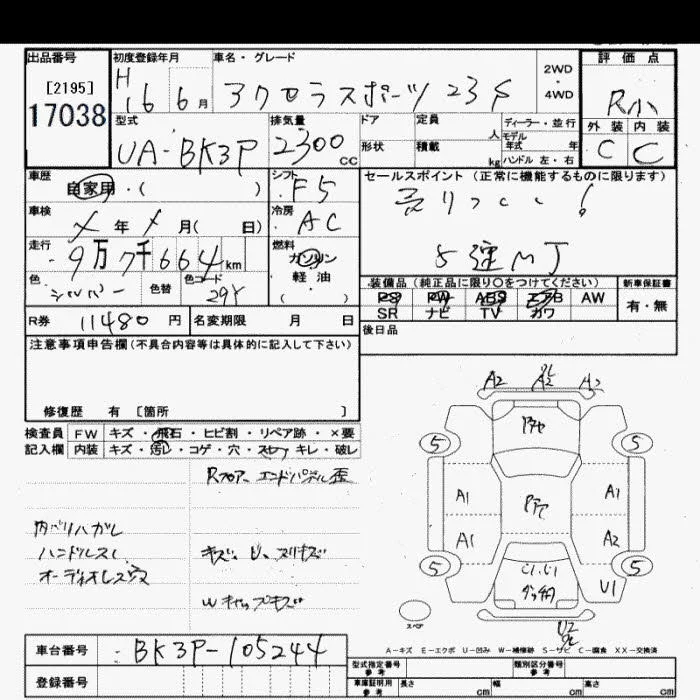 出品番号 初度登録年月 車名・グレード 評価点
[2195] H 2WD
17038 16 6月 アクセラスポーツ 23S ・ R小
4WD
型式 排気量 ドア 定員 ディーラー・並行 外装 内装
UA-BK3P 2300cc 形状 積載 人 モデル年式 年 C C
kg ハンドル 左・右
車歴 シフト セールスポイント(正常に機能するものに限ります)
自家用・( ) F5 売りつくし!
車検 冷房
年 月( 日) AC
走行 燃料 5速MT
9万7千664km ガソリン
色 色替 色コード 軽・油 装備品(純正品に限り○をつけてください) 新車保証書
シルバー ( ) PS PW ABS エアB AW 有・無
SR ナビ TV カワ
R券 11480円 名変期限 月 日 後日品
注意事項申告欄(不具合内容等は具体的に記入して下さい)
修復歴 有 [箇所 ]
検査員 FW キズ・飛石・ヒビ割・リペア跡・×要
記入欄 内装 キズ・汚レ・コゲ・穴・スレ・キレ・破レ
Rフロアー エンドパネル歪
内ハリハガレ
ハンドルスレ キズ、U、スリキズ
オーディオレス穴
Wキャップキズ
A2 A2 A2
5 5
A1 A1
A1 A2
5 5
U1
スペア
U2
A-キズ E-エクボ U-凹み W-補修跡 S-サビ C-腐食 XX-交換済
車台番号 BK3P-105244
登録番号
型式指定番号 参考 類別区分番号 参考
車庫証明用 参考 長さ cm 幅 cm 高さ cm